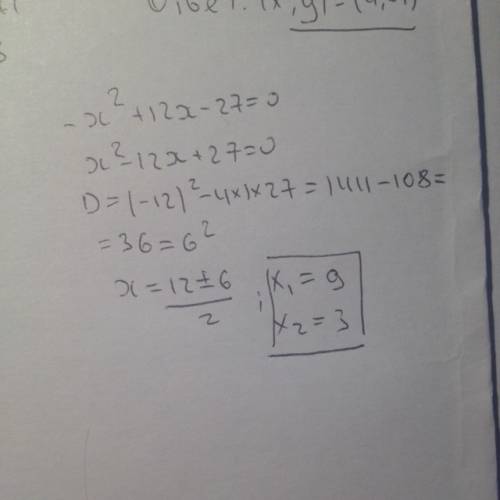 -x² + 12x - 27 = 0
x² - 12x + 27 = 0
D = (-12)² - 4×1×27 = 144 - 108 =
= 36 = 6²
x = 12 ± 6 / 2 ; x₁ = 9
x₂ = 3